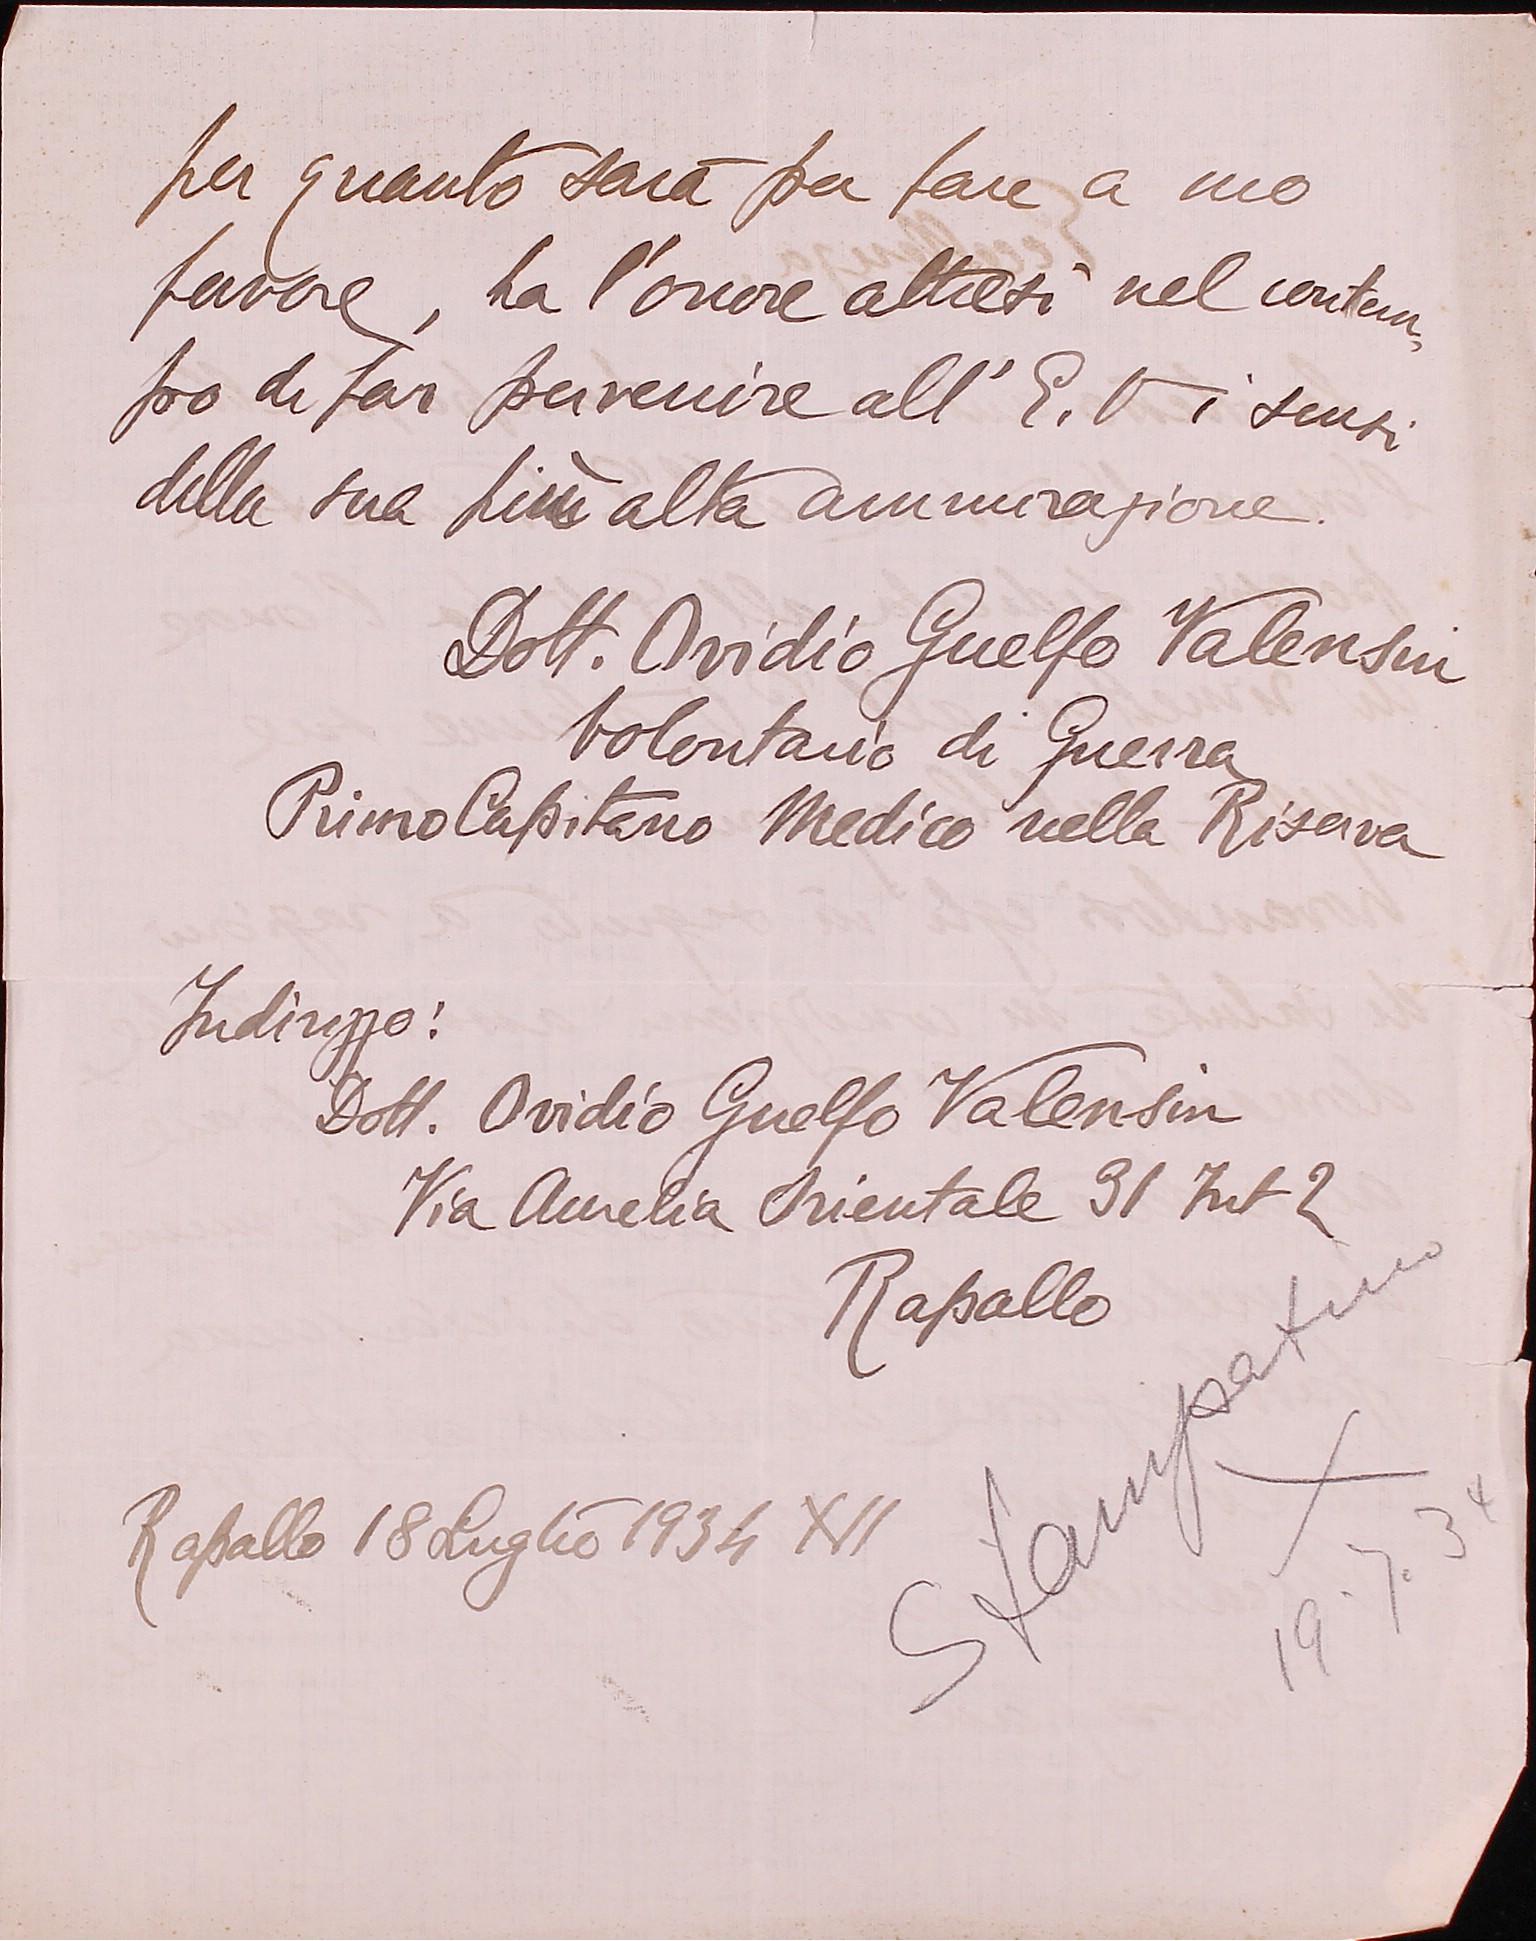 per quanto sarà per fare a suo
favore, ha l'onore altresì nel contem=
po di far pervenire all' E. V i sensi
della sua più alta ammirazione.
Dott. Ovidio Guelfo Valensin
Volontario di Guerra
Primo Capitano Medico nella Riserva
Indirizzo:
Dott. Ovidio Guelfo Valensin
Via Aurelia Orientale 31 Int 2
Rapallo
Rapallo 18 Luglio 1934 XII
Stampatino
19.7.34